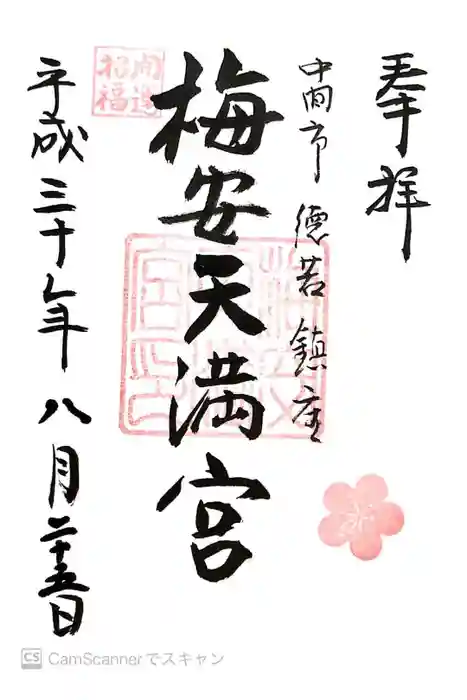 奉拝
中間市 徳若 鎮座
梅安天満宮
開運
招福
平成三十年八月二十五日
CS CamScannerでスキャン